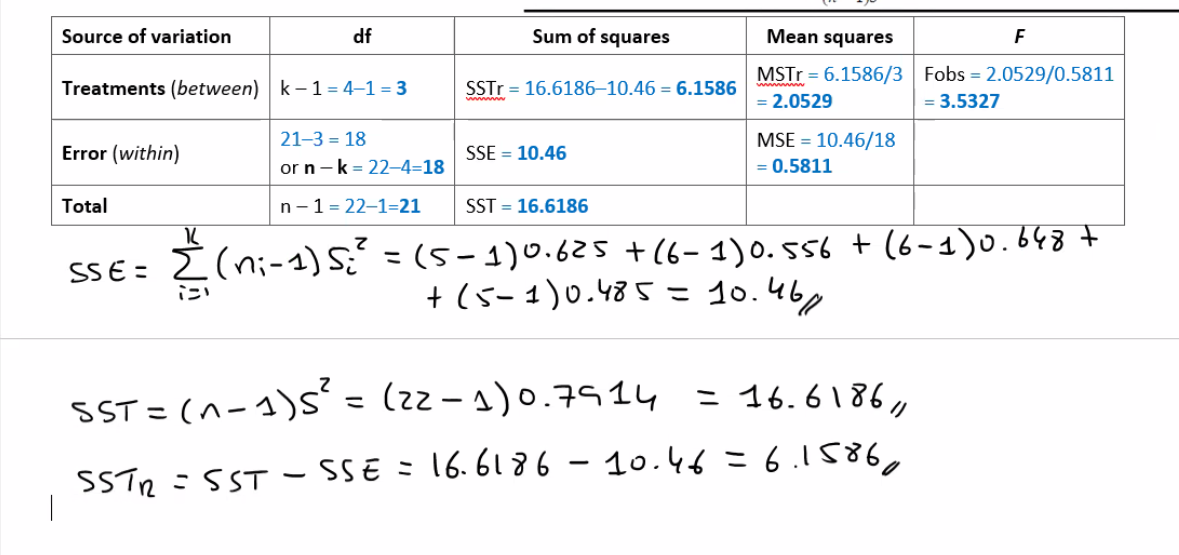 Source of variation df Sum of squares Mean squares F
Treatments (between) k – 1 = 4–1 = 3 SSTr = 16.6186–10.46 = 6.1586 MSTr = 6.1586/3 Fobs = 2.0529/0.5811
= 2.0529 = 3.5327
Error (within) 21–3 = 18 SSE = 10.46 MSE = 10.46/18
or n – k = 22–4=18 = 0.5811
Total n – 1 = 22–1=21 SST = 16.6186
SSE = K ∑ i=1 (ni-1) Si² = (5-1)0.625 + (6-1)0.556 + (6-1)0.648 +
+ (5-1)0.485 = 10.46//
SST = (n-1)S² = (22-1)0.7914 = 16.6186//
SSTr = SST - SSE = 16.6186 - 10.46 = 6.1586//